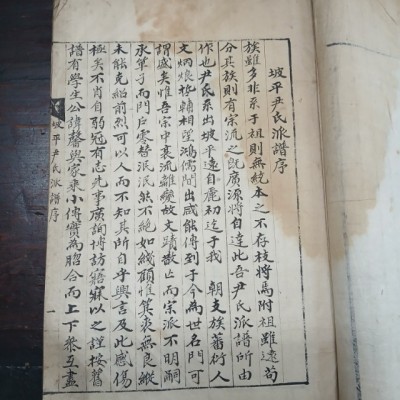 坡平尹氏派譜序
族雖多非系于祖則無統本之不存枝將焉附祖雖遠苟
分其族則有宗流之旣廣源將自達此吾尹氏派譜所由
作也尹氏系出坡平遠自麗初迄于我 朝支族蕃衍人
文炳烺勢輔相望鴻儒間出咸能傳到于今爲世名門可
謂盛矣惟吾宗中衰流離變故文蹟散亡而宗派不明嗣
承單子而門戶零替泯泯然不絶如綫顧惟箕裘無良縱
未能克紹前烈可以人而不知其所自乎興言及此感傷
極矣不肖自弱冠有志先事廣詢博訪寤寐以之謹按舊
譜有學生公諱馨與家乘小傳實爲脗合而上下叅互盡
坡平尹氏派譜序
一